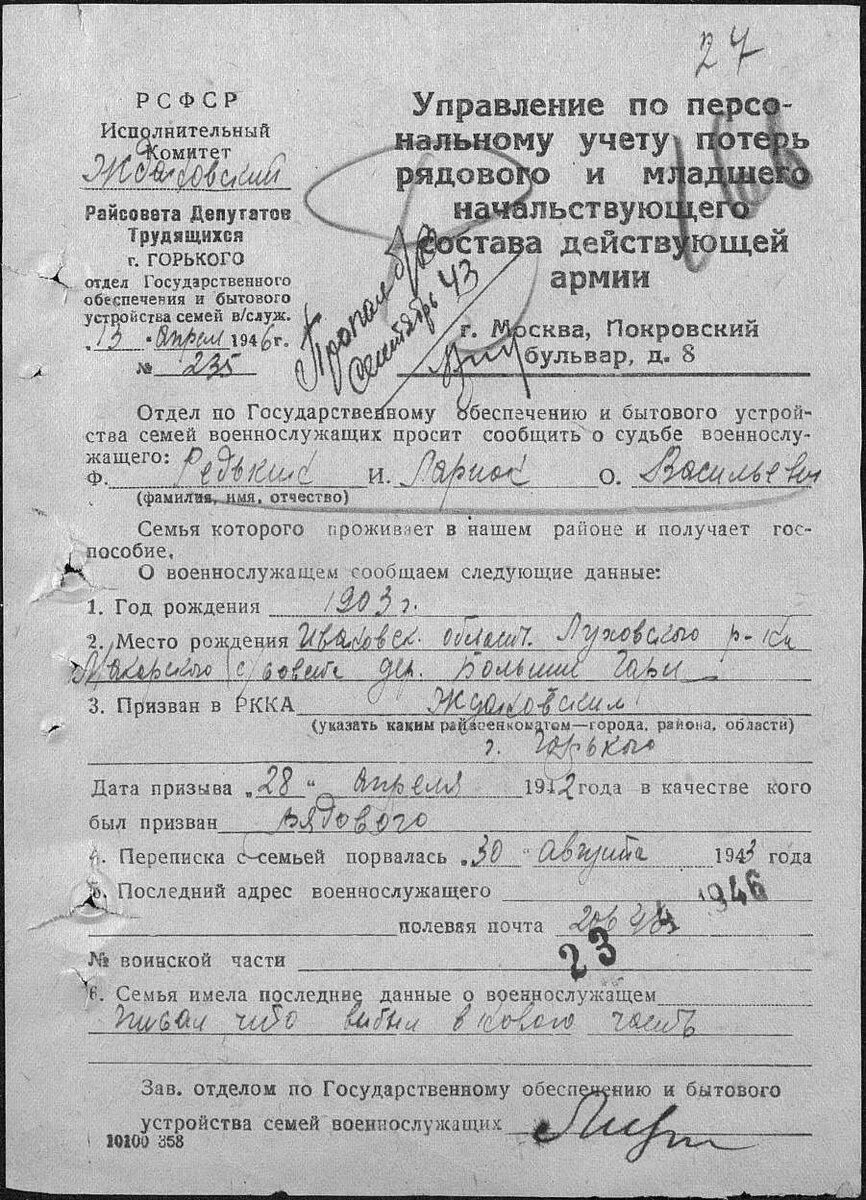 27
РСФСР
Исполнительный
Комитет
Ждановский
Райсовета Депутатов
Трудящихся
г. ГОРЬКОГО
отдел Государственного
обеспечения и бытового
устройства семей в/служ.
„13 " апреля 1946 г.
№ 235
Управление по персо-
нальному учету потерь
рядового и младшего
начальствующего
состава действующей
армии
г. Москва, Покровский
бульвар, д. 8
Пропал б/в
сентябрь 43
Отдел по Государственному обеспечению и бытового устрой-
ства семей военнослужащих просит сообщить о судьбе военнослу-
жащего:
Ф. Редькин И. Ларион О. Васильевич
(фамилия, имя, отчество)
Семья которого проживает в нашем районе и получает гос-
пособие.
О военнослужащем сообщаем следующие данные:
1. Год рождения 1903 г.
2. Место рождения Ивановск. област. Луховского р-на
Макарского с/совета дер. Большие Гари
3. Призван в РККА Ждановским
(указать каким райвоенкоматом—города, района, области)
г. Горького
Дата призыва „28 " апреля 1942 года в качестве кого
был призван рядового
4. Переписка с семьей порвалась „30 " августа 1943 года
5. Последний адрес военнослужащего
1946
полевая почта
23
№ воинской части
6. Семья имела последние данные о военнослужащем
писал что выбыл в новую часть
Зав. отделом по Государственному обеспечению и бытового
устройства семей военнослужащих
10100 358